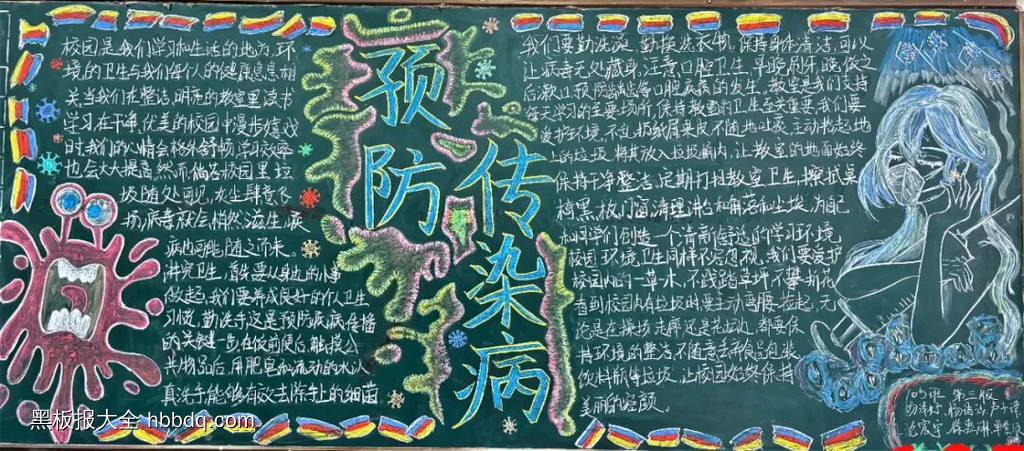 预防
传染病
校园是我们学习和生活的地方,环
境的卫生与我们每个人的健康息息相
关,当我们在整洁,明亮的教室里读书
学习,在干净,优美的校园中漫步嬉戏
时,我们的心情会格外舒畅,学习效率
也会大大提高,然而,倘若校园里垃
圾随处可见,灰尘肆意飞
扬,病毒就会悄然滋生,疾
病也可能随之而来。
讲究卫生,首先要从身边的小事
做起,我们要养成良好的个人卫生
习惯,勤洗手这是预防疾病传播
的关键一步在饭前便后,触摸公
共物品后,用肥皂和流动的水认
真洗手能够有效去除手上的细菌
我们要勤洗澡,勤换洗衣物,保持身体清洁,可以
让病毒无处藏身。注意口腔卫生,早晚刷牙,饭后
后漱口,预防龋齿等口腔疾病的发生。教室是我们
每天学习的主要场所,保持教室的卫生至关重要,我们要
爱护环境,不乱扔纸屑果皮,不随地吐痰,主动拾起地
上的垃圾,将其放入垃圾桶内,让教室的地面始终
保持干净整洁,定期打扫教室卫生,擦拭桌
椅黑板门窗,清理讲台和角落的垃圾,为自己
和同学们创造一个清新舒适的学习环境,
校园环境卫生同样不容忽视,我们要爱护
校园内的一草一木,不践踏草坪不攀折花
看到校园内有垃圾时要主动弯腰拾起,无
论是在操场走廊还是花坛边,都要保
持环境的整洁,不随意丢弃食品包装
饮料瓶等垃圾,让校园始终保持
美丽的容颜。
第三版
黑板报大全 hbbdq.com